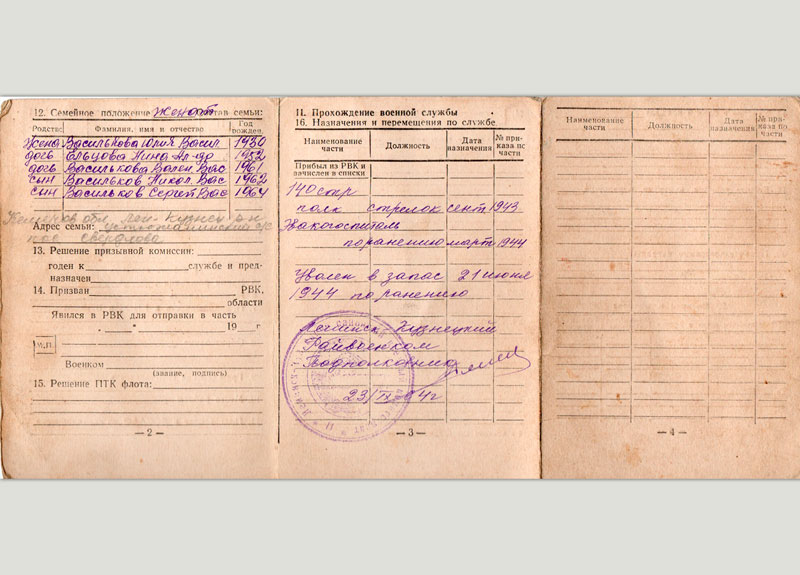 12. Семейное положение женат состав семьи:
Родство Фамилия, имя и отчество Год рожден.
Жена Василькова Юлия Васил. 1930
дочь Ельцова Нина Ал-др 1952
дочь Василькова Вален. Вас 1961
сын Васильков Никол. Вас 1962
сын Васильков Сергей Вас 1964
Кемеровск обл. Лен-Кузнец р-н
Адрес семьи:
13. Решение призывной комиссии:
годен к службе и пред-
назначен
14. Призван РВК,
области
Явился в РВК для отправки в часть
„ “ 19 г
М.П.
Военком
(звание, подпись)
15. Решение ПТК флота:
— 2 —
II. Прохождение военной службы
16. Назначения и перемещения по службе
Наименование части Должность Дата назначения № при-каза по части
Прибыл из РВК и
зачислен в списки
140 стр
полк стрелок сент 1943
Эвакогоспиталь
по ранению март 1944
Уволен в запас 21 июня
1944 по ранению
Ленинск Кузнецкий
Райвоенком
Подполковник
23/IX
— 3 —
Наименование части Должность Дата назначения № при-каза по части
— 4 —